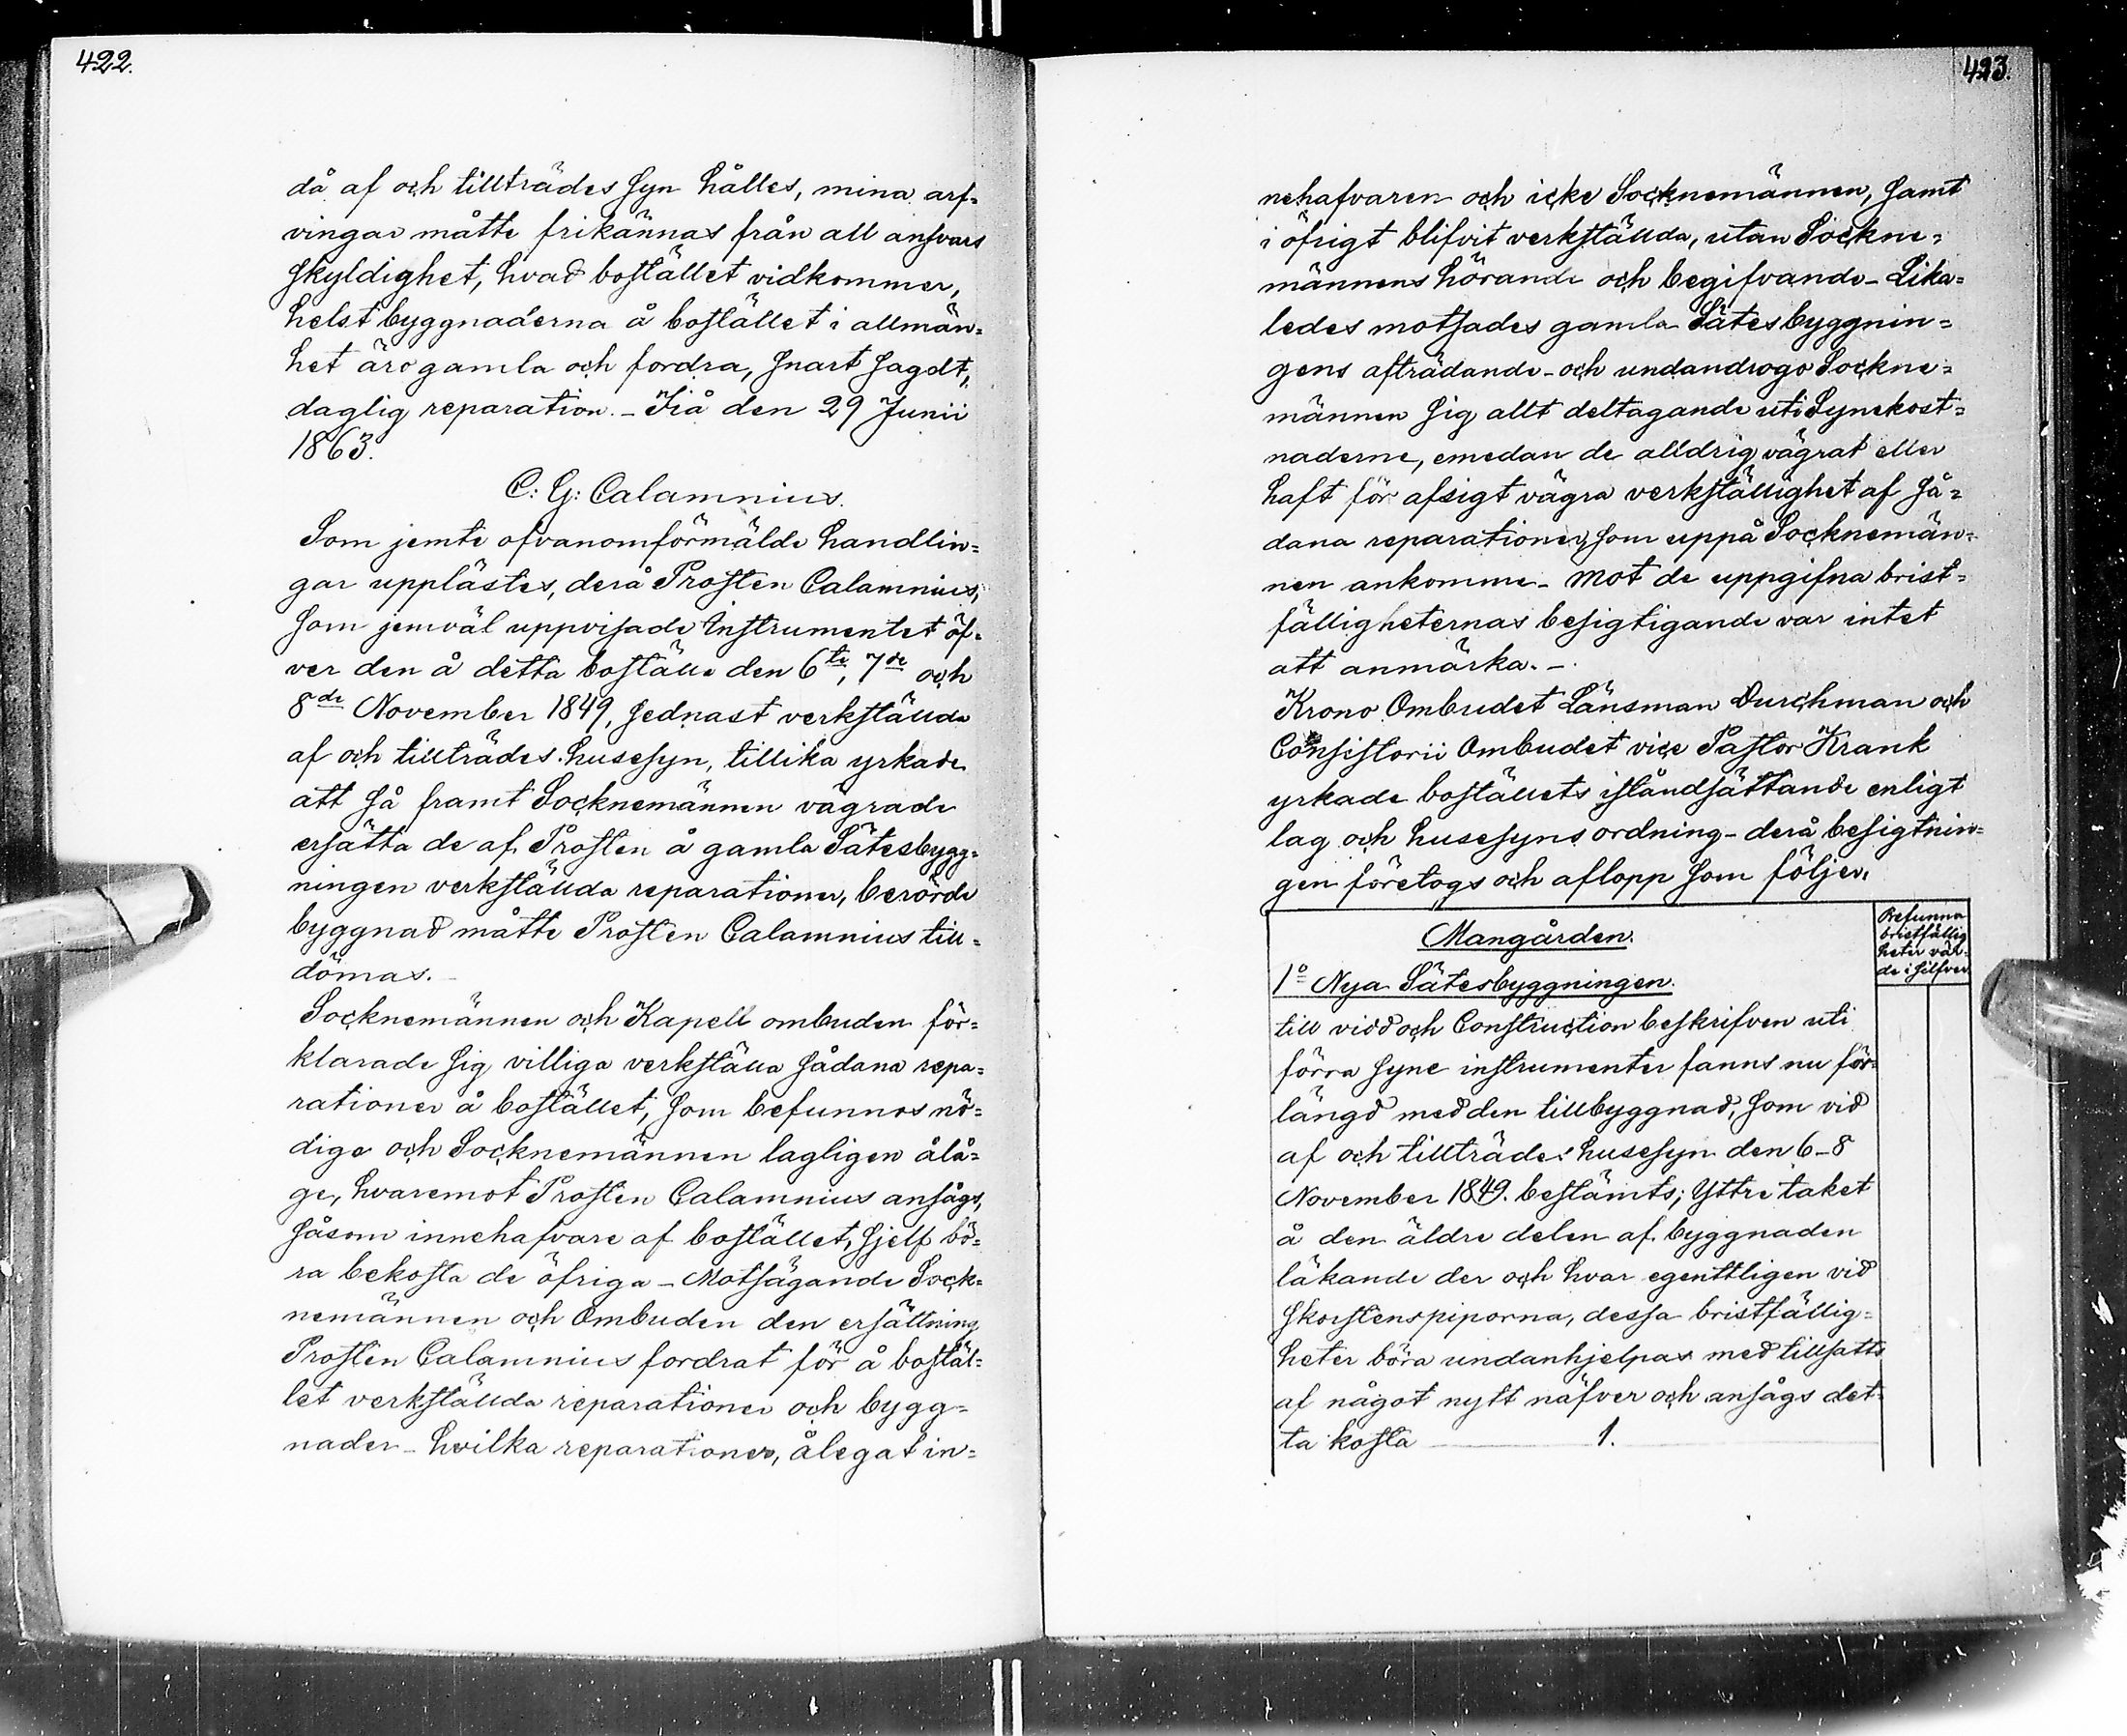 422.
då af och tillträdes syn hålles, mina arf=
vingar måtte frikännas från all ansvars
skyldighet, hvad bostället vidkommer,
helst byggnaderna å bostället i allmän=
het äro gamla och fordra, snart sagdt,
daglig reparation. – Jiå den 29 Junii
1863.
C: G: Calamnius.
Som jemte ofvanomförmälde handlin=
gar upplästes, derå Prosten Calamnius,
som jemväl uppvisade Instrumentet öf=
ver den å detta boställe den 6te, 7de och
8de November 1849, sednast verkställda
af och tillträdes husesyn, tillika yrkade
att så framt Socknemännen vägrade
ersätta de af Prosten å gamla Sätesbygg=
ningen verkställda reparationer, berörde
byggnad måtte Prosten Calamnius till=
dömas. –
Socknemännen och Kapell ombuden för=
klarade sig villiga verkställa sådana repa=
rationer å bostället, som befunnos nö=
dige och Socknemännen lagligen ålå=
ge, hvaremot Prosten Calamnius ansågs,
såsom innehafvare af bostället, sjelf bö=
ra bekosta de öfriga – Motsägande Sock=
nemännen och Ombuden den ersättning
Prosten Calamnius fordrat för å bostäl=
let verkställda reparationer och bygg=
nader – hvilka reparationer, ålegat in=
423.
nehafvaren och icke Socknemännen, samt
i öfrigt blifvit verkställda, utan Sockne=
männens hörande och begifvande – Lika=
ledes motsades gamla Sätesbyggnin=
gens afträdande – och undandrogo Sockne=
männen sig allt deltagande uti Synekost=
naderne, emedan de alldrig vägrat eller
haft för afsigt vägra verkställighet af så=
dana reparationer, som uppå Socknemän=
nen ankomme – mot de uppgifna brist=
fälligheternas besigtigande var intet
att anmärka. –
Krono Ombudet Länsman Durchman och
Consistorii Ombudet vice Pastor Krank
yrkade boställets iståndsättande enligt
lag och husesyns ordning – derå besigtnin=
gen företogs och aflopp som följer.
Befunna
bristfällig
heter vär=
de i silfver
Mangården.
1o Nya Sätesbyggningen.
till vidd och Construction beskrifven uti
förra syne instrumenter fanns nu för=
längd med den tillbyggnad, som vid
af och tillträdes husesyn den 6–8
November 1849. bestämts; Yttre taket
å den äldre delen af byggnaden
läkande der och hvar egenttligen vid
skorstenspiporna, dessa bristfällig=
heter böra undanhjelpas med tillsatts
af något nytt näfver och ansågs det=
ta kosta 1.